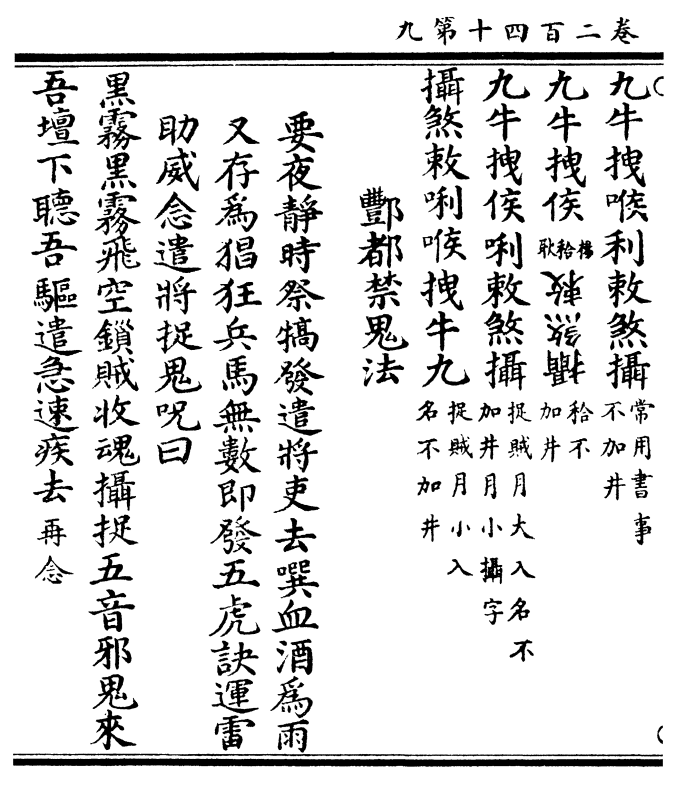 卷二百四十第九
九牛拽喉利敕煞攝 常用書事不加井
九牛拽侯 楊秴耿 敕煞攝 秴不加井
九牛拽侯唎敕煞攝 捉賊月大入名不加井月小攝字
攝煞敕唎喉拽牛九 捉賊月小入名不加井
酆都禁鬼法
要夜靜時祭犒發遣將吏去噀血酒爲雨
又存爲猖狂兵馬無數即發五虎訣運雷
助威念遣將捉鬼呪曰
黑霧黑霧飛空鎖賊收魂攝捉五音邪鬼來
吾壇下聽吾驅遣急速疾去 再念